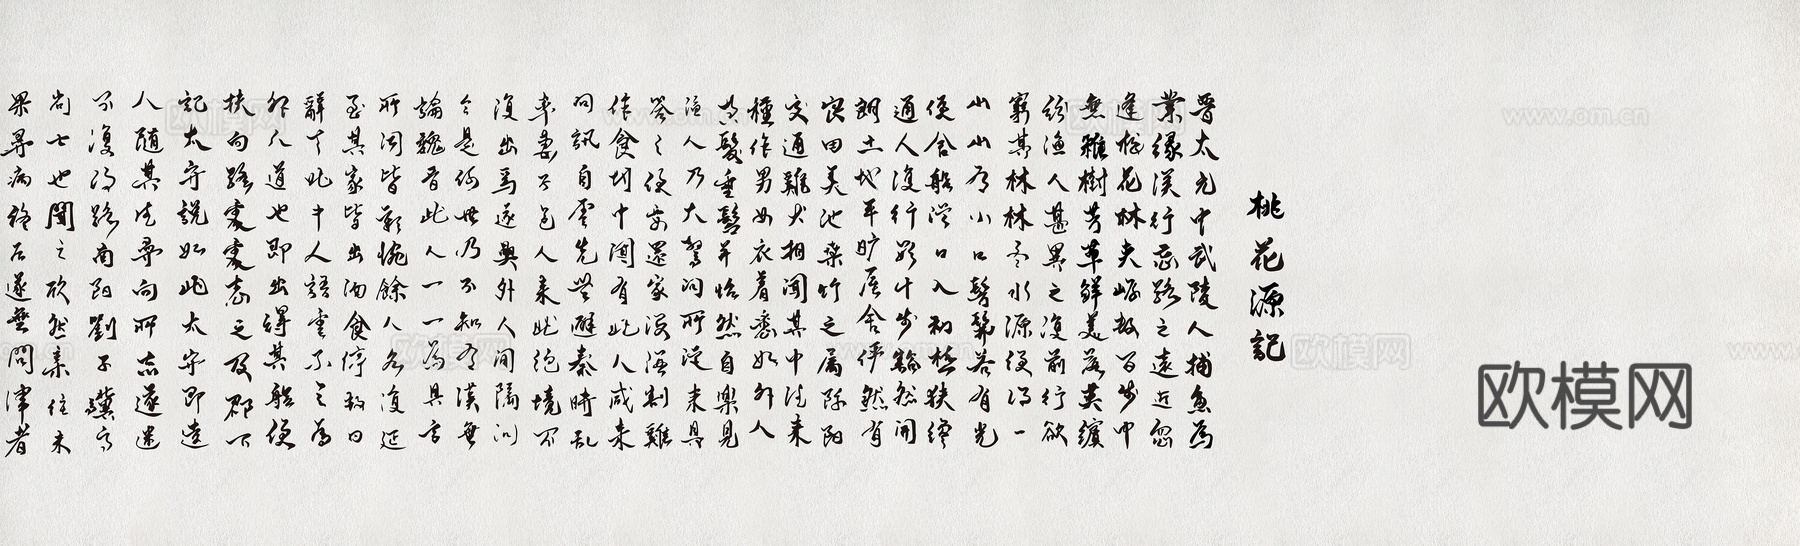 桃花源記
晋太元中武陵人捕魚為
業緣溪行忘路之遠近忽
逢桃花林夾岸數百步中
無雜樹芳草鮮美落英繽
紛漁人甚異之復前行欲
窮其林林盡水源便得一
山山有小口髣髴若有光
便舍船從口入初極狹纔
通人復行數十步豁然開
朗土地平曠屋舍儼然有
良田美池桑竹之屬阡陌
交通雞犬相聞其中往來
種作男女衣着悉如外人
黃髮垂髫并怡然自樂見
漁人乃大驚問所從來具
答之便要還家設酒殺雞
作食村中聞有此人咸來
問訊自雲先世避秦時亂
率妻子邑人來此絕境不
復出焉遂與外人間隔問
今是何世乃不知有漢無
論魏晋此人一一為具言
所聞皆歎惋餘人各復延
至其家皆出酒食停數日
辭去此中人語雲不足為
外人道也即出得其船便
扶向路處處志之及郡下
記太守說如此太守即遣
人隨其往尋向所志遂迷
不復得路南陽劉子驥高
尚士也聞之欣然親往未
果尋病終后遂無問津者
欧模网
欧模网 www.om.cn